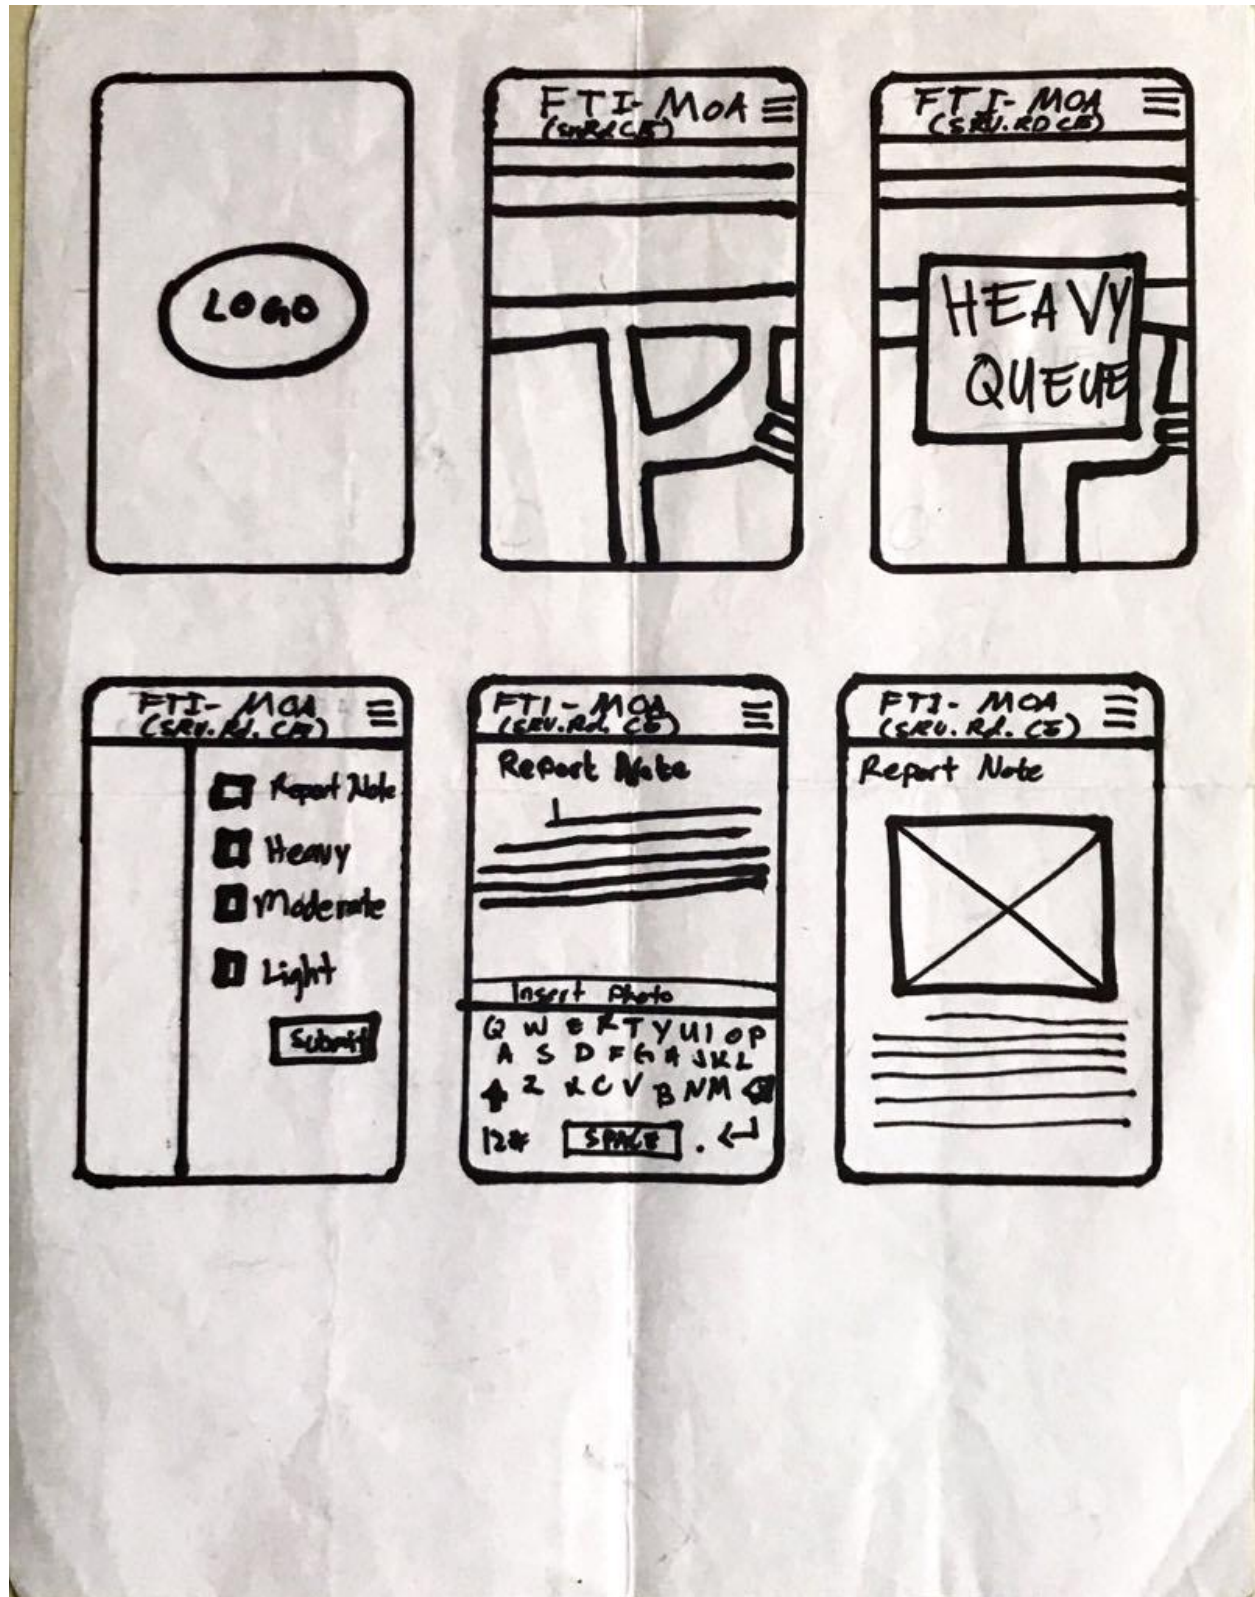 LOGO
FTI- MOA
FTI- MOA
(SRV. RD CE)
HEAVY
QUEUE
FTI- MOA
(SRV. Rd. CE)
Report Note
Heavy
Moderate
Light
Submit
FTI- MOA
(SRV. Rd. CE)
Report Note
Insert Photo
Q W E R T Y U I O P
A S D F G H J K L
Z X C V B N M
12#
SPACE
.
FTI- MOA
(SRV. Rd. CE)
Report Note